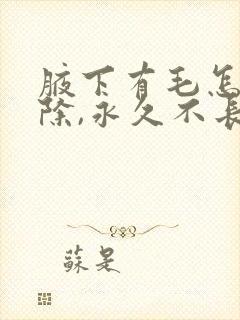 腋下有毛怎
除,永久不長
蘇是